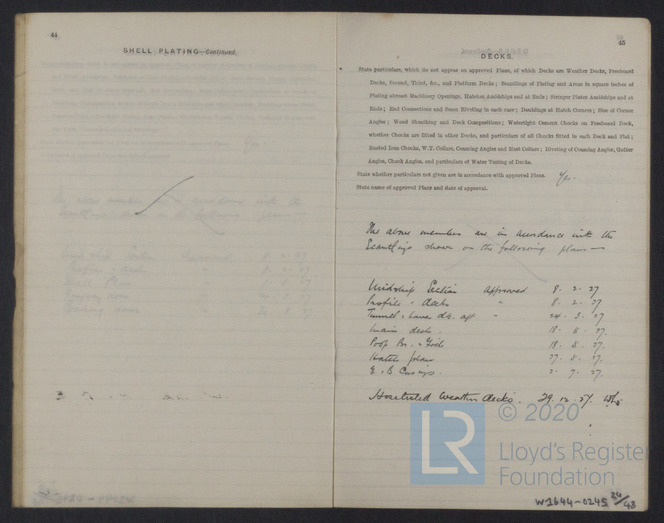 44
SHELL PLATING—Continued.
45
DECKS.
State particulars, which do not appear on approved Plans, of which Decks are Weather Decks, Freeboard
Decks, Second, Third, &c., and Platform Decks; Scantlings of Plating and Areas in square inches of
Plating abreast Machinery Openings, Hatches Amidships and at Ends; Stringer Plates Amidships and at
Ends; End Connections and Seam Riveting in each case; Doublings at Hatch Corners; Size of Corner
Angles; Wood Sheathing and Deck Compositions; Watertight Cement Chocks on Freeboard Deck,
whether Chocks are fitted in other Decks, and particulars of all Chocks fitted in each Deck and Flat;
Rusted Iron Chocks, W.T. Collars, Coaming Angles and Mast Collars; Riveting of Coaming Angles, Gutter
Angles, Chock Angles, and particulars of Water Testing of Decks.
State whether particulars not given are in accordance with approved Plans. Yes.
State name of approved Plans and date of approval.
The above members are in accordance with the
Scantlings shown on the following plans—
Midship Section approved 8. 2. 27
Profile & decks " 8. 2. 27
Tunnel & aft " 24. 3. 27
Main deck. 18. 8. 27.
Poop Br. & Fo'cle 18. 8. 27.
Hatch plan 27. 8. 27.
E. & B Casings. 2. 7. 27.
Hose tested Weather decks. 29. 12. 27.
© 2020
LR
Lloyd's Register
Foundation
W1644-0245 24/43